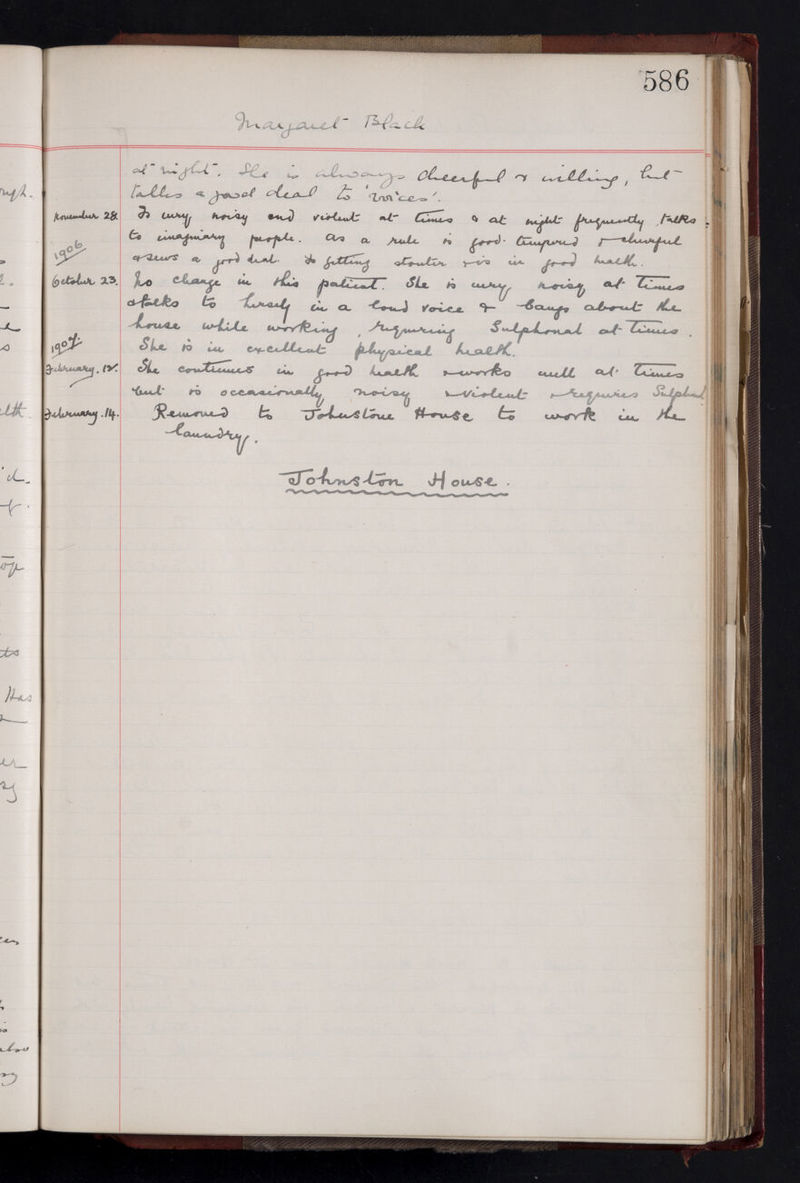 586
Margaret Black
at night. She is always cheerful & willing, but
talks a good deal to 'voices'.
November 28. Is very noisy and violent at times & at night frequently talks
to imaginary people. As a rule is good-tempered & cheerful
1906
& sews a good deal. Is getting stouter & is in good health.
October 23. No change in this patient. She is very noisy at times
& talks to herself in a loud voice & bangs about the
house while working, requiring Sulphonal at times.
1907.
She is in excellent physical health.
February. 12. She continues in good health & works well at times
but is occasionally noisy & violent & requires Sulphonal
February. 14. Removed to Johnstone House to work in the
laundry.
Johnston House.